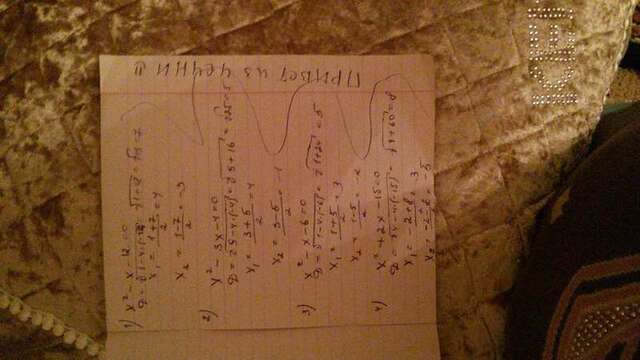 1) x² - x - 12 = 0
D = √1-4·(-12) = √1+12 = √49 = 7
x₁ = 1+7/2 = 4
x₂ = 1-7/2 = -3
2) x² - 3x - 4 = 0
D = √9-4·(-4) = √9+16 = √25 = 5
x₁ = 3+5/2 = 4
x₂ = 3-5/2 = -1
3) x² - x - 6 = 0
D = √1-4·(-6) = √1+24 = 5
x₁ = 1+5/2 = 3
x₂ = 1-5/2 = -2
4) x² + 2x - 15 = 0
D = √4-4·(-15) = √4+60 = 8
x₁ = -2+8/2 = 3
x₂ = = -5
ПРИВЕТ ИЗ ЧЕЧНИ!!
KE